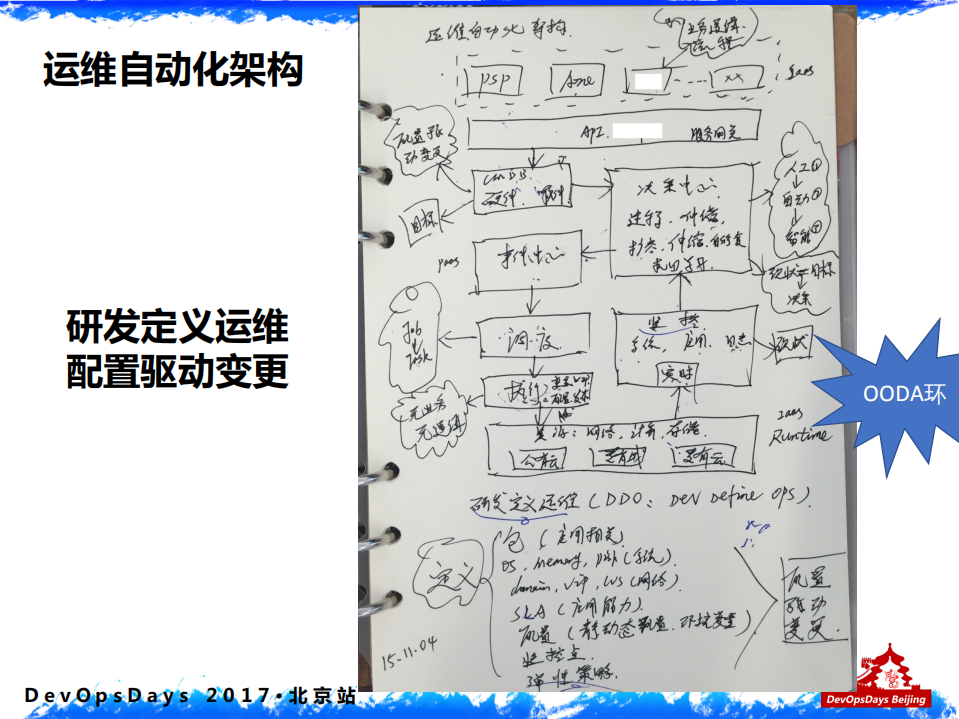 运维自动化架构
研发定义运维
配置驱动变更
运维自动化架构.
业务逻辑.
流程
psp
Aone
----
xx
Saas
API
服务网关
配置驱
动变更
CMDB
硬件. 软件
目标
决策中心
扩容. 伸缩. 自修复
人工①
自动②
智能③
paas
事件中心
现状=目标
决策
Job
Task
调度
监控
系统, 应用, 日志
实时
现状
OODA环
执行
无业务
无逻辑
资源: 网络, 计算, 存储.
公有云
私有云
Iaas
Runtime
研发定义运维 (DDO: Dev Define Ops).
定义
包 (应用相关)
OS, memory, disk (系统).
domain, vip, LVS (网络).
SLA (应用能力).
配置 (静动态配置. 环境变量)
监控点.
弹性策略.
配置
驱动
变更.
15.11.04
DevOpsDays 2017·北京站
DevOpsDays Beijing